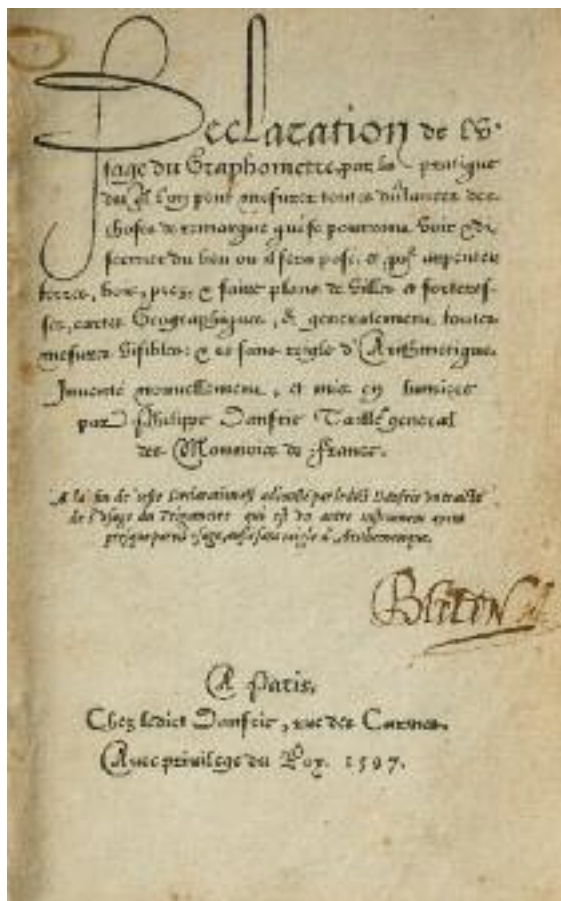 Declaration de l'v-
sage du Graphometre, par la pratique
du ql l'on peut mesurer toutes distances des
choses de remarque qui se pourront voir & di-
scerner du lieu ou il sera posé, et pour arpenter
terres, bois, prez, & faire plans de villes et forteres-
ses, cartes Geographiques, & generalement toutes
mesures visibles: & ce sans reigle d'Arithmetique.
Inventé nouvellement, et mis en lumiere
par Philippe Danfrie Tailleʳ general
des Monnoies de France.
A la fin de ceste Declaration est adiousté par ledict Danfrie un traicté
de l'usage du Trigometre qui est un autre instrument
presque pareil usage, aussi sans reigle d'Arithmetique.
A Paris,
Chez ledict Danfrie, rue des Carmes.
Avec privilege du Roy. 1597.